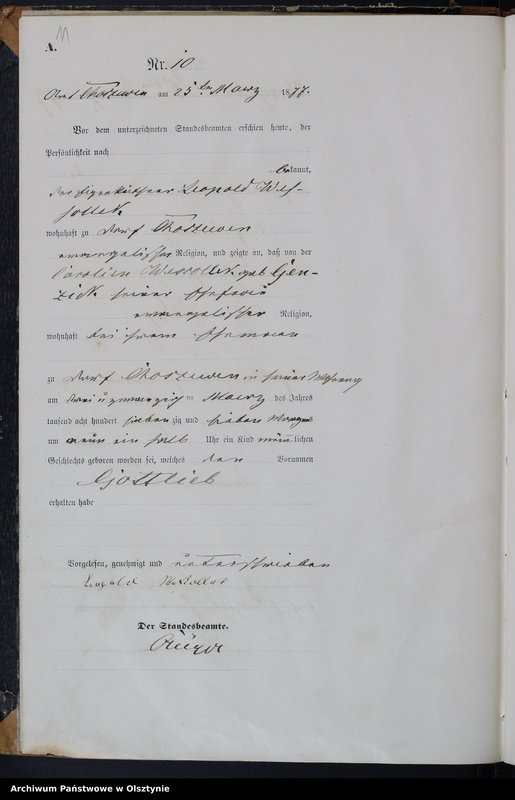 11
A.
Nr. 10
am 25ten Maerz 1877.
Vor dem unterzeichneten Standesbeamten erschien heute, der
Persönlichkeit nach
bekannt,
der Eigenkäthner Leopold Wes-
sollek
wohnhaft zu Dorf
evangelischer Religion, und zeigte an, daß von der
Carolien Wessollek geb Gen-
zick seiner Ehefrau
evangelischer Religion,
wohnhaft bei ihrem Ehemann
zu Dorf in seiner Wohnung
am dreiundzwanzigsten Maerz des Jahres
tausend acht hundert sieben zig und sieben Morgens
um neun ein halb Uhr ein Kind männlichen
Geschlechts geboren worden sei, welches den Vornamen
Gottlieb
erhalten habe
Vorgelesen, genehmigt und unterschrieben
Leopold
Der Standesbeamte.
Archiwum Państwowe w Olsztynie